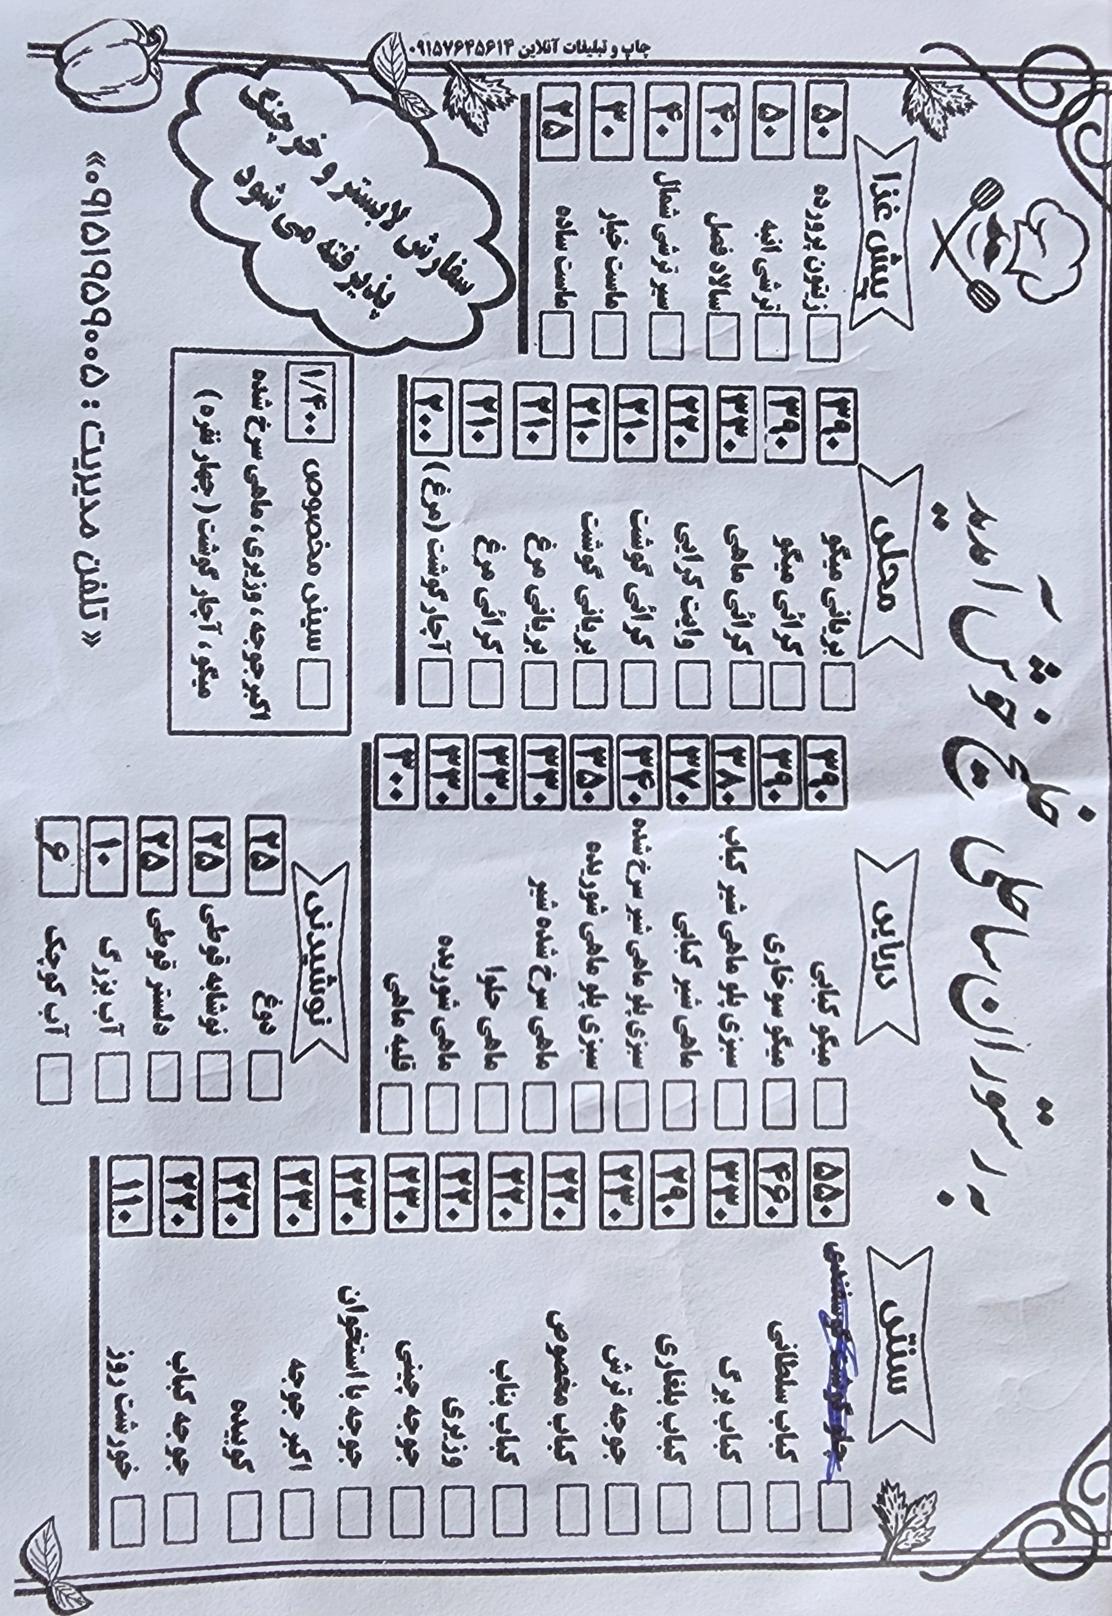 به رستوران ساحلی خلیج خوش آمدید
سنتی
چلو گوشت گوسفندی ۵۵۰
کباب سلطانی ۴۶۰
کباب برگ ۳۳۰
کباب بلغاری ۲۹۰
جوجه ترش ۲۳۰
کباب مخصوص ۲۲۰
کباب بناب ۲۲۰
وزیری ۲۲۰
جوجه چینی ۲۳۰
جوجه با استخوان ۲۳۰
اکبر جوجه ۲۳۰
کوبیده ۲۲۰
جوجه کباب ۲۲۰
خورشت روز ۱۱۰
دریایی
میگو کبابی ۳۹۰
میگو سوخاری ۳۹۰
سبزی پلو ماهی شیر کباب ۳۸۰
ماهی شیر کبابی ۳۷۰
سبزی پلو ماهی شیر سرخ شده ۳۴۰
سبزی پلو ماهی شوریده ۳۵۰
ماهی سرخ شده شیر ۳۳۰
ماهی حلوا ۳۳۰
ماهی شوریده ۳۳۰
قلیه ماهی ۳۰۰
نوشیدنی
دوغ ۲۵
نوشابه قوطی ۲۵
دلستر قوطی ۲۵
آب بزرگ ۱۰
آب کوچک ۶
محلی
بریانی میگو ۳۹۰
کرائی میگو ۳۹۰
کرائی ماهی ۳۳۰
وایت کرایی ۲۲۰
کرائی گوشت ۲۱۰
بریانی گوشت ۲۱۰
بریانی مرغ ۲۱۰
کرائی مرغ ۲۱۰
آچار گوشت (مرغ) ۲۰۰
سینی مخصوص ۱/۴۰۰
اکبر جوجه، وزیری، ماهی سرخ شده
میگو، آچار گوشت (چهار نفره)
پیش غذا
زیتون پرورده ۵۰
ترشی انبه ۵۰
سالاد فصل ۴۰
سیر ترشی شمال ۴۰
ماست خیار ۳۰
ماست ساده ۲۵
سفارش لابستر و خرچنگ
پذیرفته می شود
«تلفن مدیریت : ۰۹۱۵۱۹۵۹۰۰۵»
چاپ و تبلیغات آنلاین ۰۹۱۵۷۶۴۵۶۱۴